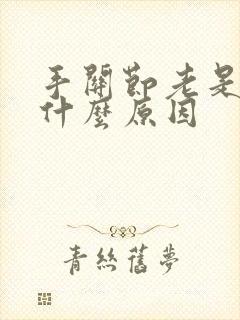 手關節老是
什麼原因
青絲舊夢